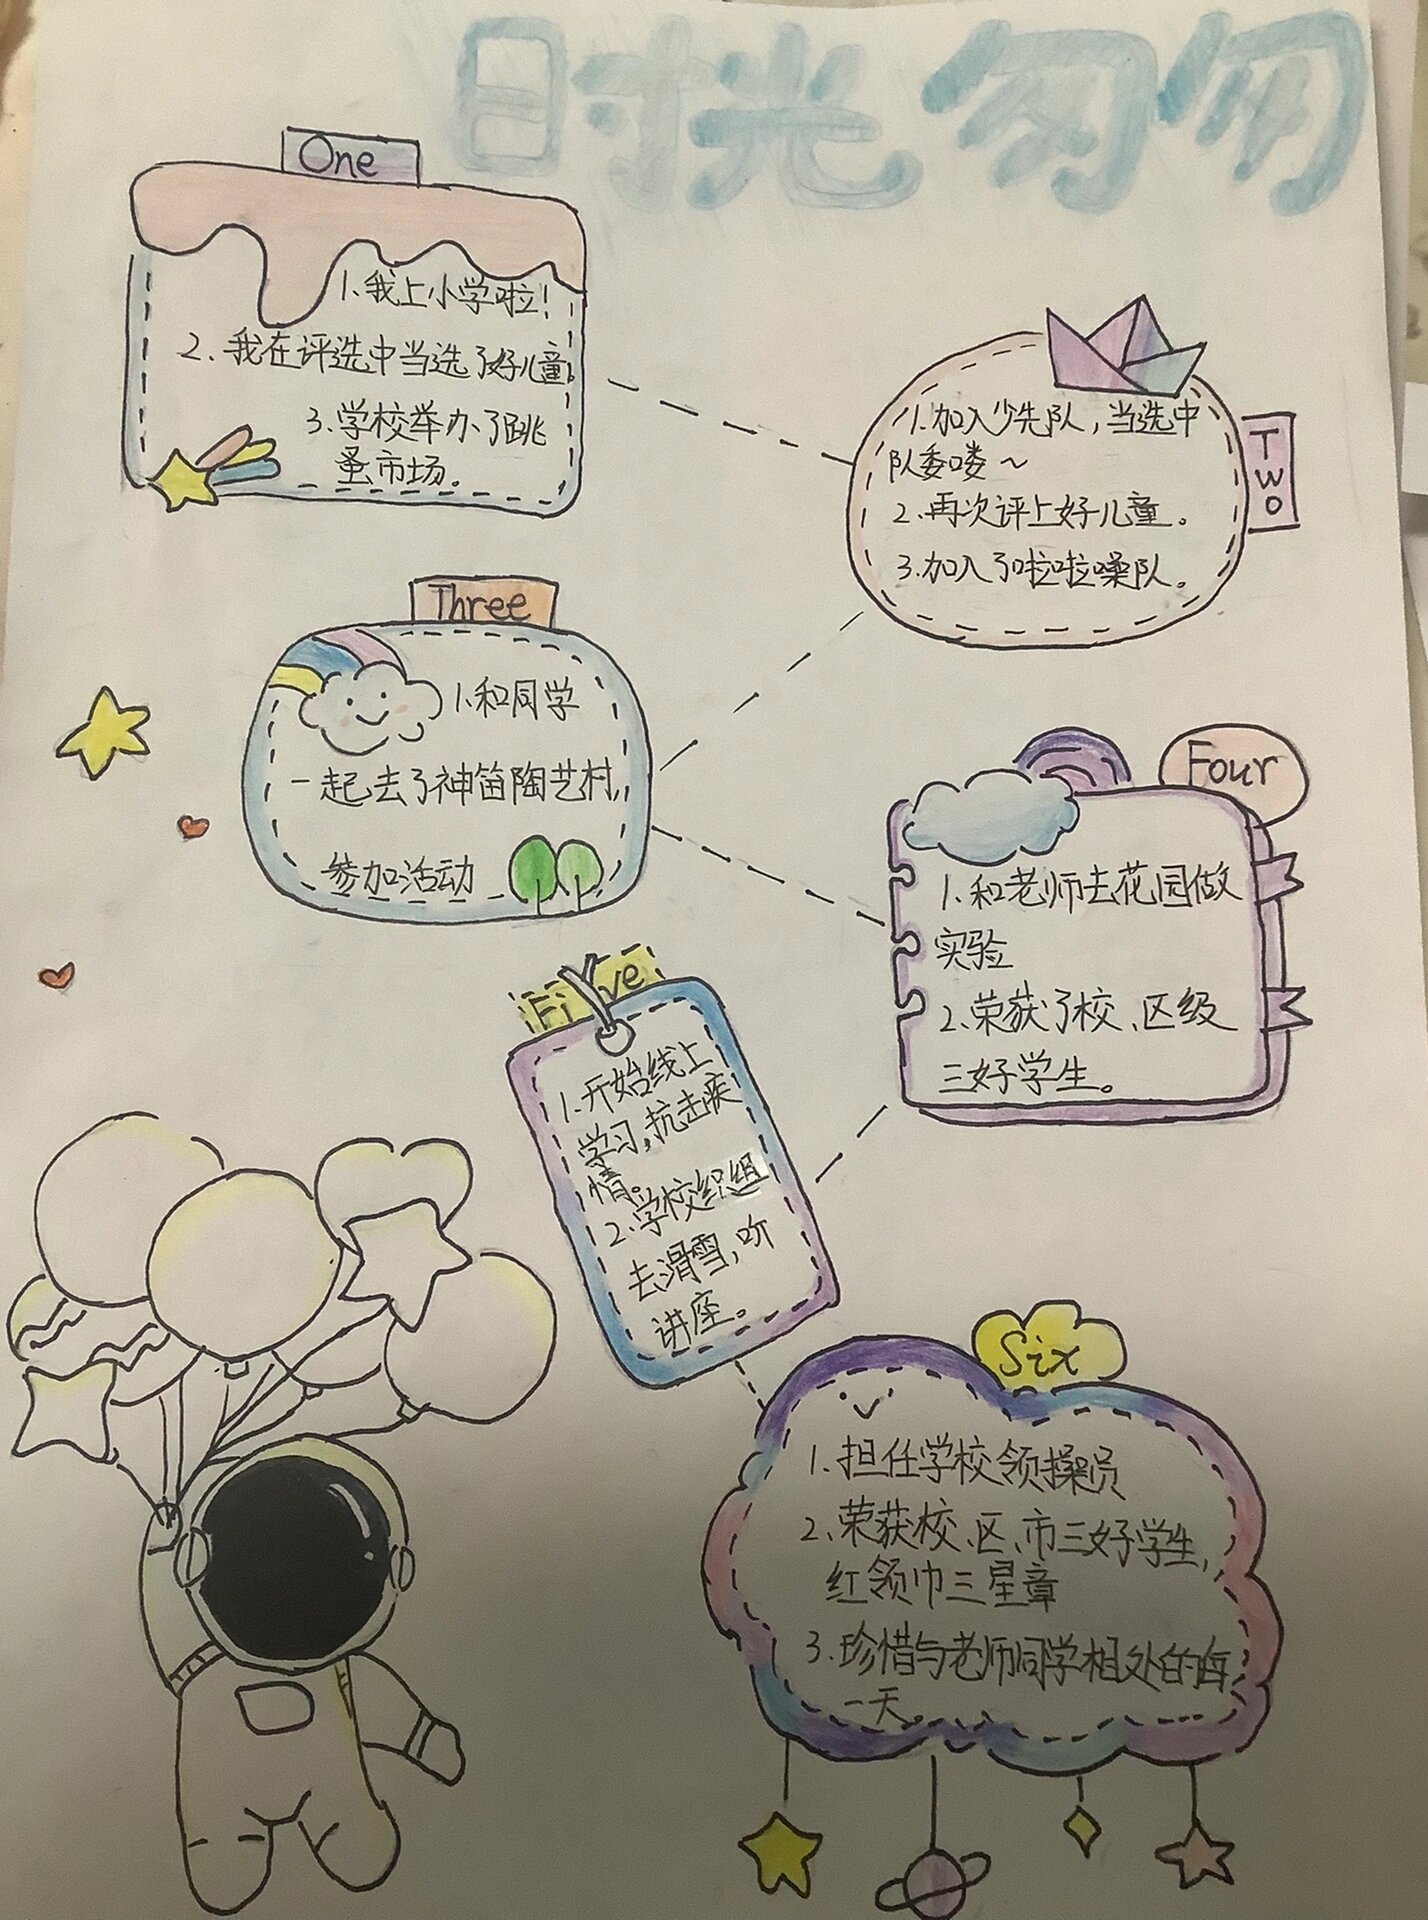 时光匆匆
One
1.我上小学啦！
2.我在评选中当选了好儿童。
3.学校举办了跳
蚤市场。
TWO
1.加入少先队，当选中
队委喽～
2.再次评上好儿童。
3.加入了啦啦噪队。
Three
1.和同学
一起去了神笛陶艺村，
参加活动
Four
1.和老师去花园做
实验
2.荣获了校、区级
三好学生。
Five
1.开始线上
学习，抗击疾
情。
2.学校织组
去滑雪，听
讲座。
Six
1.担任学校领操员
2.荣获校、区、市三好学生，
红领巾三星章
3.珍惜与老师同学相处的每
一天。